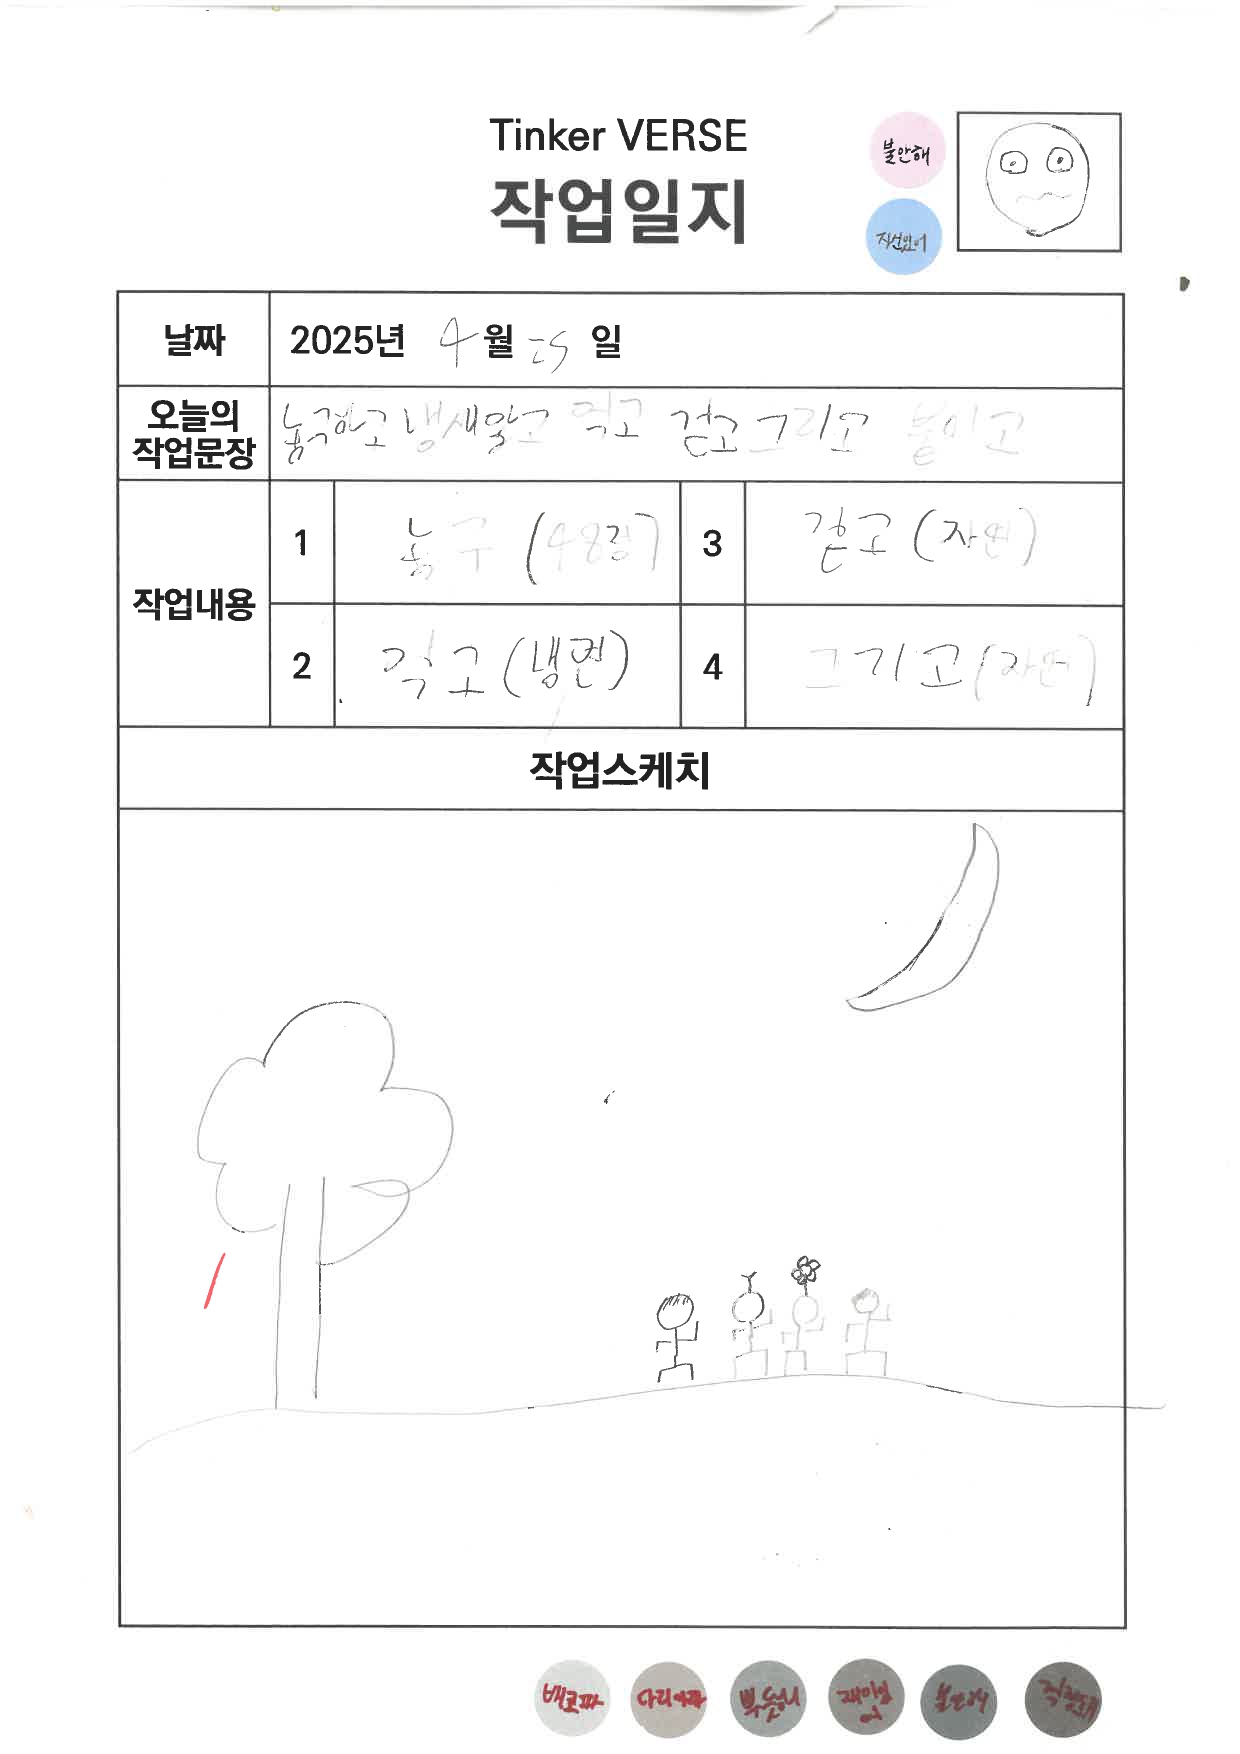 Tinker VERSE
작업일지
불안해
자신있어
날짜
2025년 4월 25일
오늘의
작업문장
농구하고 냉새맡고 먹고 걷고 그리고 붙이고
작업내용
1
농구 (4명랑)
3
걷고 (자연)
2
먹고 (냉면)
4
그리고 (자연)
작업스케치
배고파
다리아파
뿌듯해
재미있어
불안해